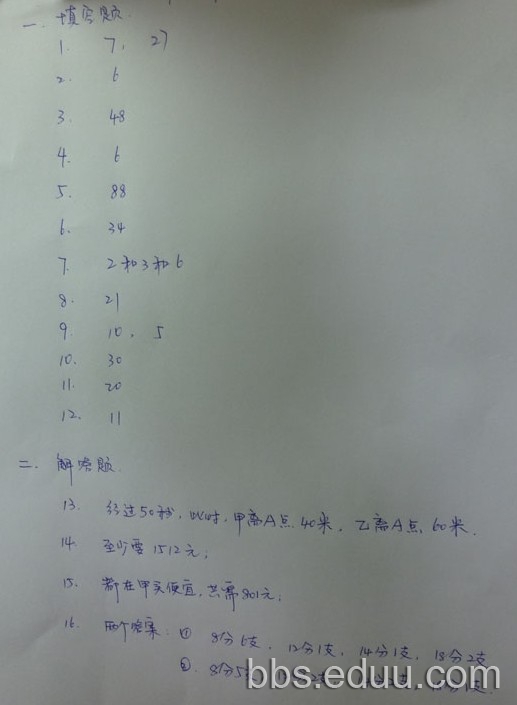 一. 填写题.
1. 7, 27
2. 6
3. 48
4. 6
5. 88
6. 34
7. 2和3和6
8. 21
9. 10. 5
10. 30
11. 20
12. 11
二. 解答题.
13. 经过50秒, 此时, 甲离A点40米, 乙离A点60米.
14. 至少需1512元;
15. 都在甲买便宜, 共需801元;
16. 两个答案: ① 8分6支, 12分1支, 14分1支, 18分2支
② 8分5支
bbs.eduu.com